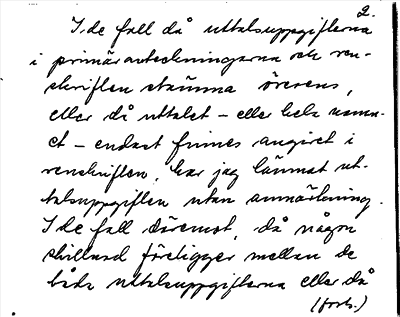 2.
I de fall då uttalsuppgifterna
i primäranteckningarna och ren-
skriften stämma överens,
eller då uttalet – eller hela namn-
et – endast finnes angivet i
renskriften, har jag lämnat ut-
talsuppgiften utan anmärkning.
I de fall däremot, då någon
skillnad föreligger mellan de
båda uttalsuppgifterna eller då
(forts.)